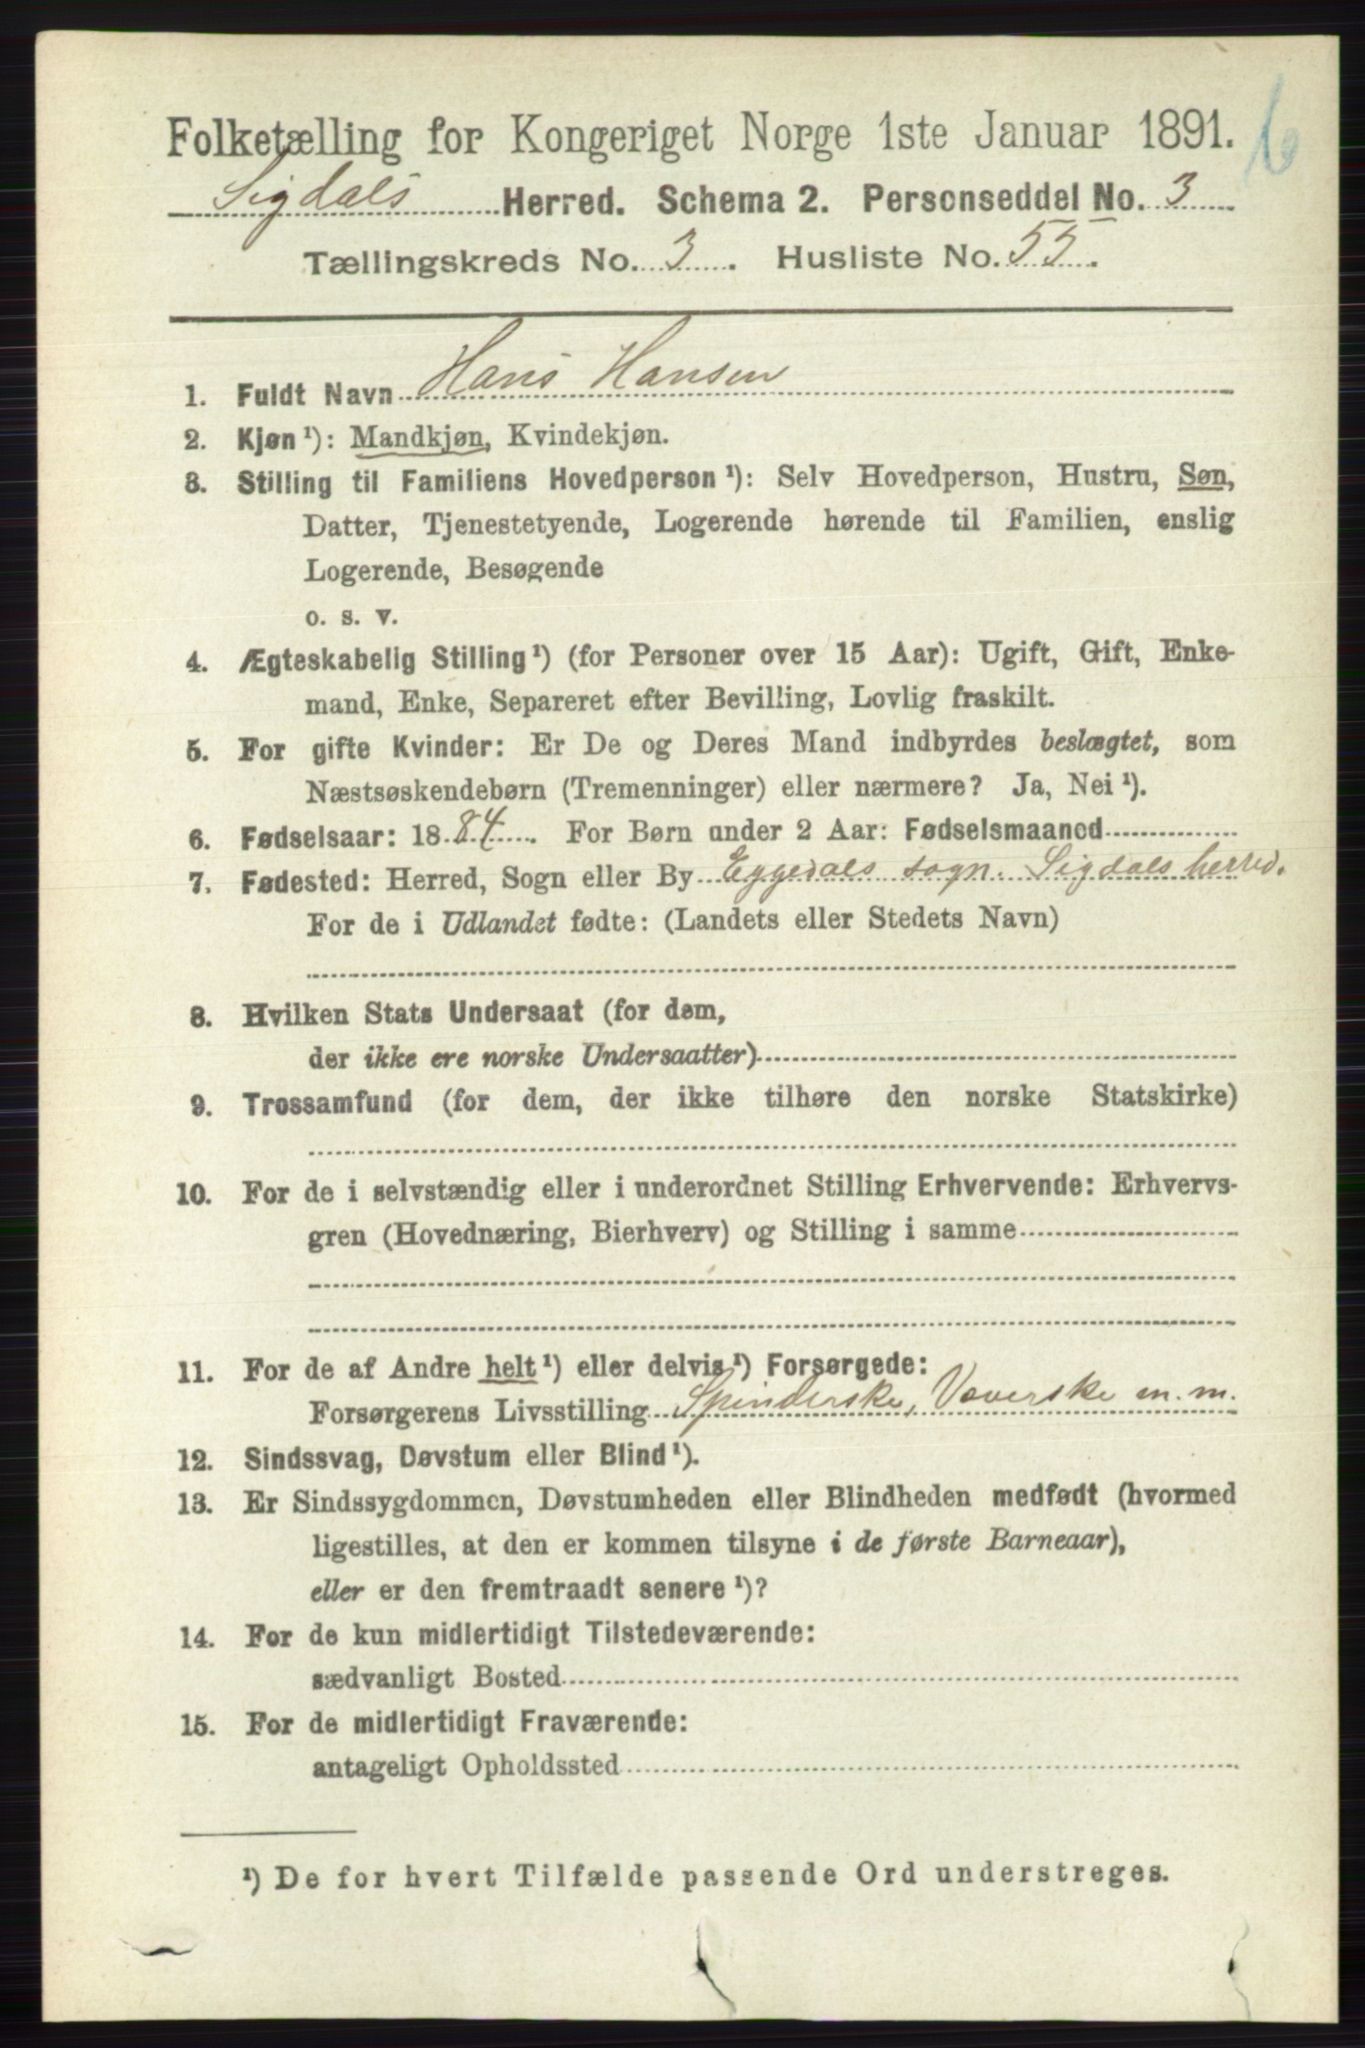 Folketælling for Kongeriget Norge 1ste Januar 1891.
6
Sigdals Herred. Schema 2. Personseddel No. 3
Tællingskreds No. 3. Husliste No. 55.
1. Fuldt Navn Hans Hansen
2. Kjøn¹): Mandkjøn, Kvindekjøn.
3. Stilling til Familiens Hovedperson¹): Selv Hovedperson, Hustru, Søn,
Datter, Tjenestetyende, Logerende hørende til Familien, enslig
Logerende, Besøgende
o. s. v.
4. Ægteskabelig Stilling¹) (for Personer over 15 Aar): Ugift, Gift, Enke-
mand, Enke, Separeret efter Bevilling, Lovlig fraskilt.
5. For gifte Kvinder: Er De og Deres Mand indbyrdes beslægtet, som
Næstsøskendebørn (Tremenninger) eller nærmere? Ja, Nei¹).
6. Fødselsaar: 1884. For Børn under 2 Aar: Fødselsmaaned
7. Fødested: Herred, Sogn eller By Eggedals sogn. Sigdals herred.
For de i Udlandet fødte: (Landets eller Stedets Navn)
8. Hvilken Stats Undersaat (for dem,
der ikke ere norske Undersaatter)
9. Trossamfund (for dem, der ikke tilhøre den norske Statskirke)
10. For de i selvstændig eller i underordnet Stilling Erhvervende: Erhvervs-
gren (Hovednæring, Bierhverv) og Stilling i samme
11. For de af Andre helt¹) eller delvis¹) Forsørgede:
Forsørgerens Livsstilling Spinderske, Væverske m. m.
12. Sindssvag, Døvstum eller Blind¹).
13. Er Sindssygdommen, Døvstumheden eller Blindheden medfødt (hvormed
ligestilles, at den er kommen tilsyne i de første Barneaar),
eller er den fremtraadt senere¹)?
14. For de kun midlertidigt Tilstedeværende:
sædvanligt Bosted
15. For de midlertidigt Fraværende:
antageligt Opholdssted
¹) De for hvert Tilfælde passende Ord understreges.